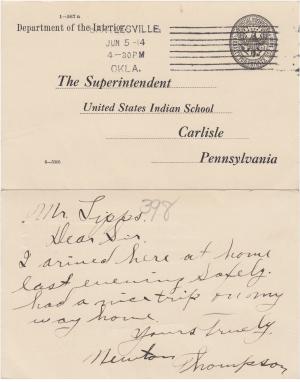 1-567a
Department of the Interior
BARTLESVILLE,
JUN 5-14
4-30PM
OKLA.
The Superintendent
United States Indian School
Carlisle
Pennsylvania
Mr. Lipps. 398
Dear Sir.
I arived here at home
last evening safely.
had a nice trip on my
way home.
Yours Truely.
Newton Thompson